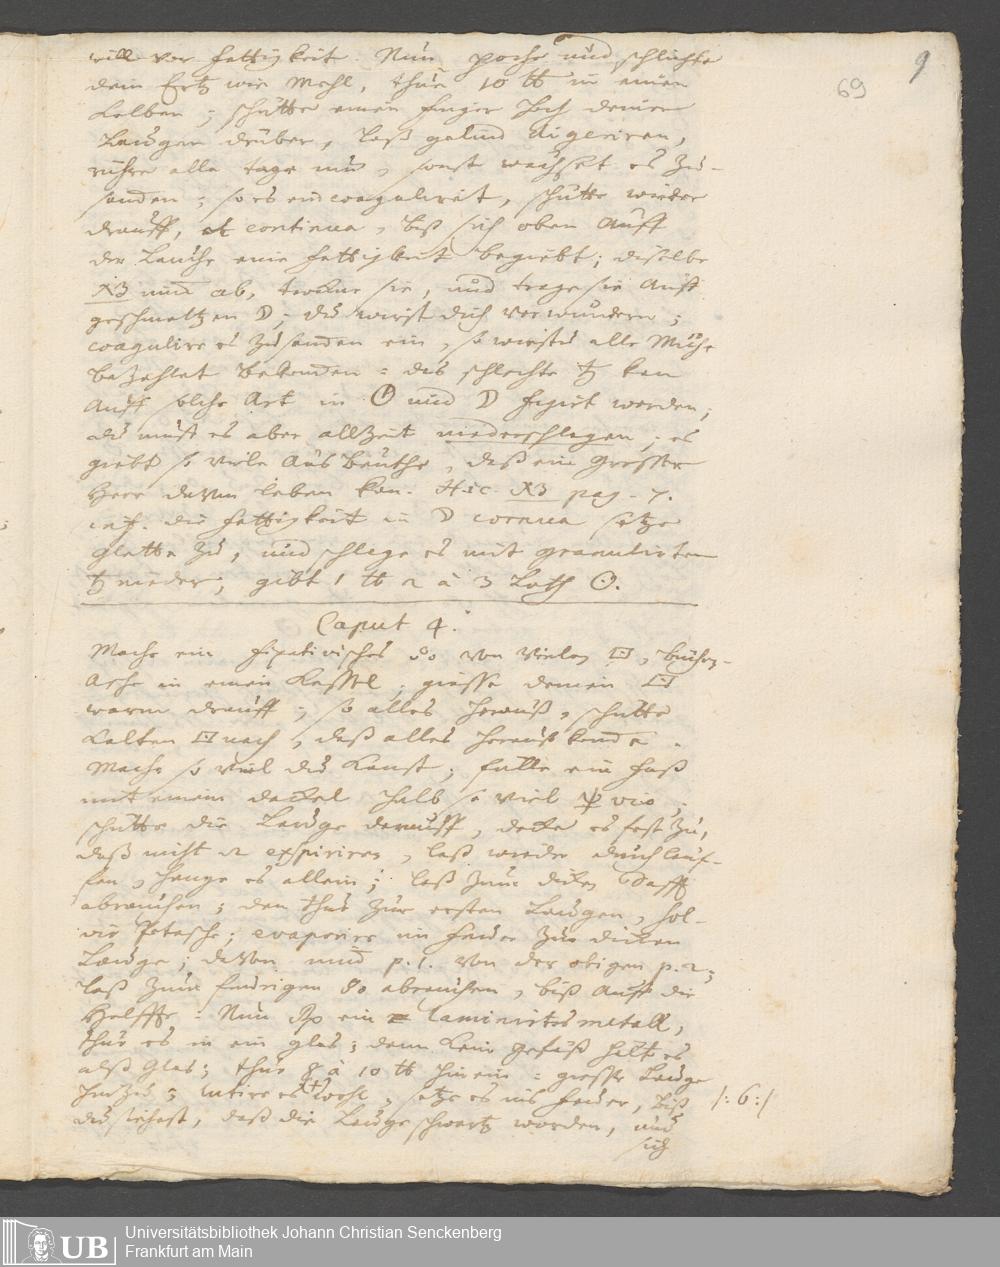 will vor fettigkeit. Nun poche und schlichte
dein Ertz wie Mehl, thue 10 ℔ in einen
Kolben; schütte einen finger hoch deiner
Laugen drüber, laß gelind digeriren,
rühre alle tage um, sonst wächset es zu-
samen; so es eincoagulirt, schütte wieder
drauff, et continua, biß sich oben auff
der Lauge eine fettigkeit begiebt; dieselbe
nim ab, trockne sie, und trage sie auff
geschmeltzen ☽; du wirst dich verwundern;
coagulire es zusamen ein, so wirstu alle Mühe
bezahlet bekomen = das schlechte ♄ kan
auff solche Art in ☉ und ☽ figirt werden,
du must es aber allzeit niederschlagen; es
giebt so viele Ausbeuthe, daß ein grosser
Herr davon leben kan. Hic NB pag. 7.
die fettigkeit in ☽ cornea setze
glette zu, und schlage es mit granulirten
♄ nieder; gibt 1 ℔ 2 à 3 Loth ☉.
Caput 4.
Mache ein fixativisches von vielen buchen-
Asche in einen Kessel; giesse deinen
warm drauff; so alles herauß, schütte
kalten nach, daß alles herauß kome.
Mache so viel du kanst; fülle ein faß
mit einem deckel halb so viel vivo;
schütte die Lauge darauff, decke es fest zu,
daß nicht expirire, laß wieder durchlauf-
fen, es allein; laß zum dicken Safft
abrauchen; den thue zur ersten Laugen,
die Potasche; evaporire im feuer zur dicken
Lauge; davon nim p. 1. von der obigen p. 2;
laß zum abrauchen, biß auff die
Helffte: Nun ein laminirtes metall,
thue es in ein glas; denn kein gefäß hält es
alß Glas; thue 8 à 10 ℔ hinein = giesse Lauge
hinzu; lutire es wohl, setze es ins feuer, biß
/: 6 :/
du siehest, daß die Lauge schwartz worden, und
sich
69
9
Universitätsbibliothek Johann Christian Senckenberg
Frankfurt am Main
UB